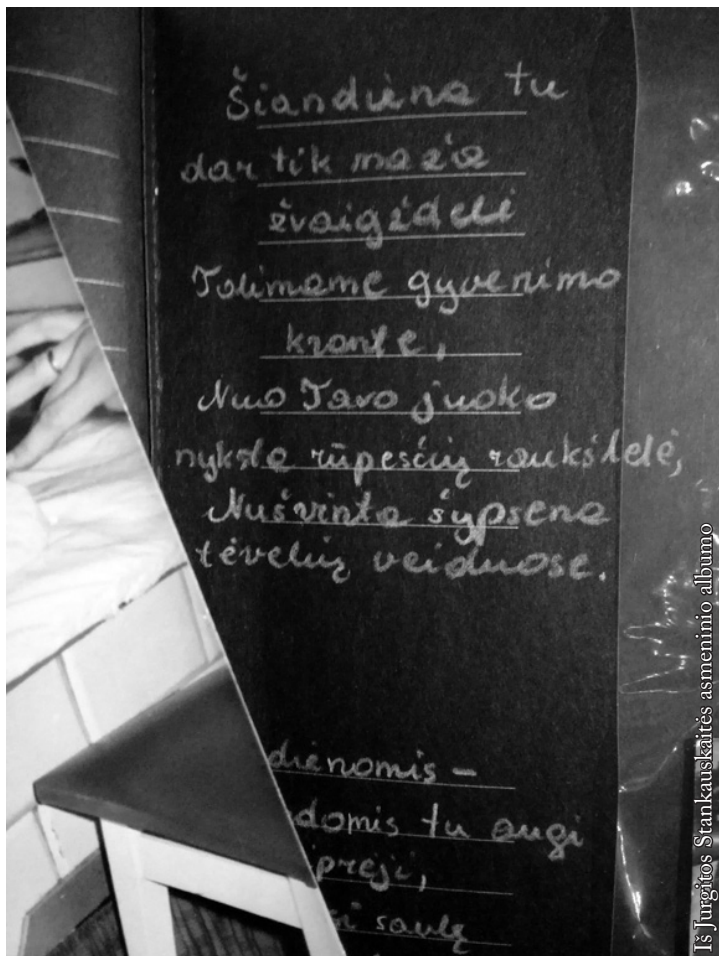 Šiandiena tu
dar tik maža
žvaigždelė
Tolimame gyvenimo
krante,
Nuo Tavo juoko
nyksta rūpesčių raukšlelė,
Nušvinta šypsena
tėvelių veiduose.
dienomis –
domis tu augi
prėji,
saulę
Iš Jurgitos Stankauskaitės asmeninio albumo